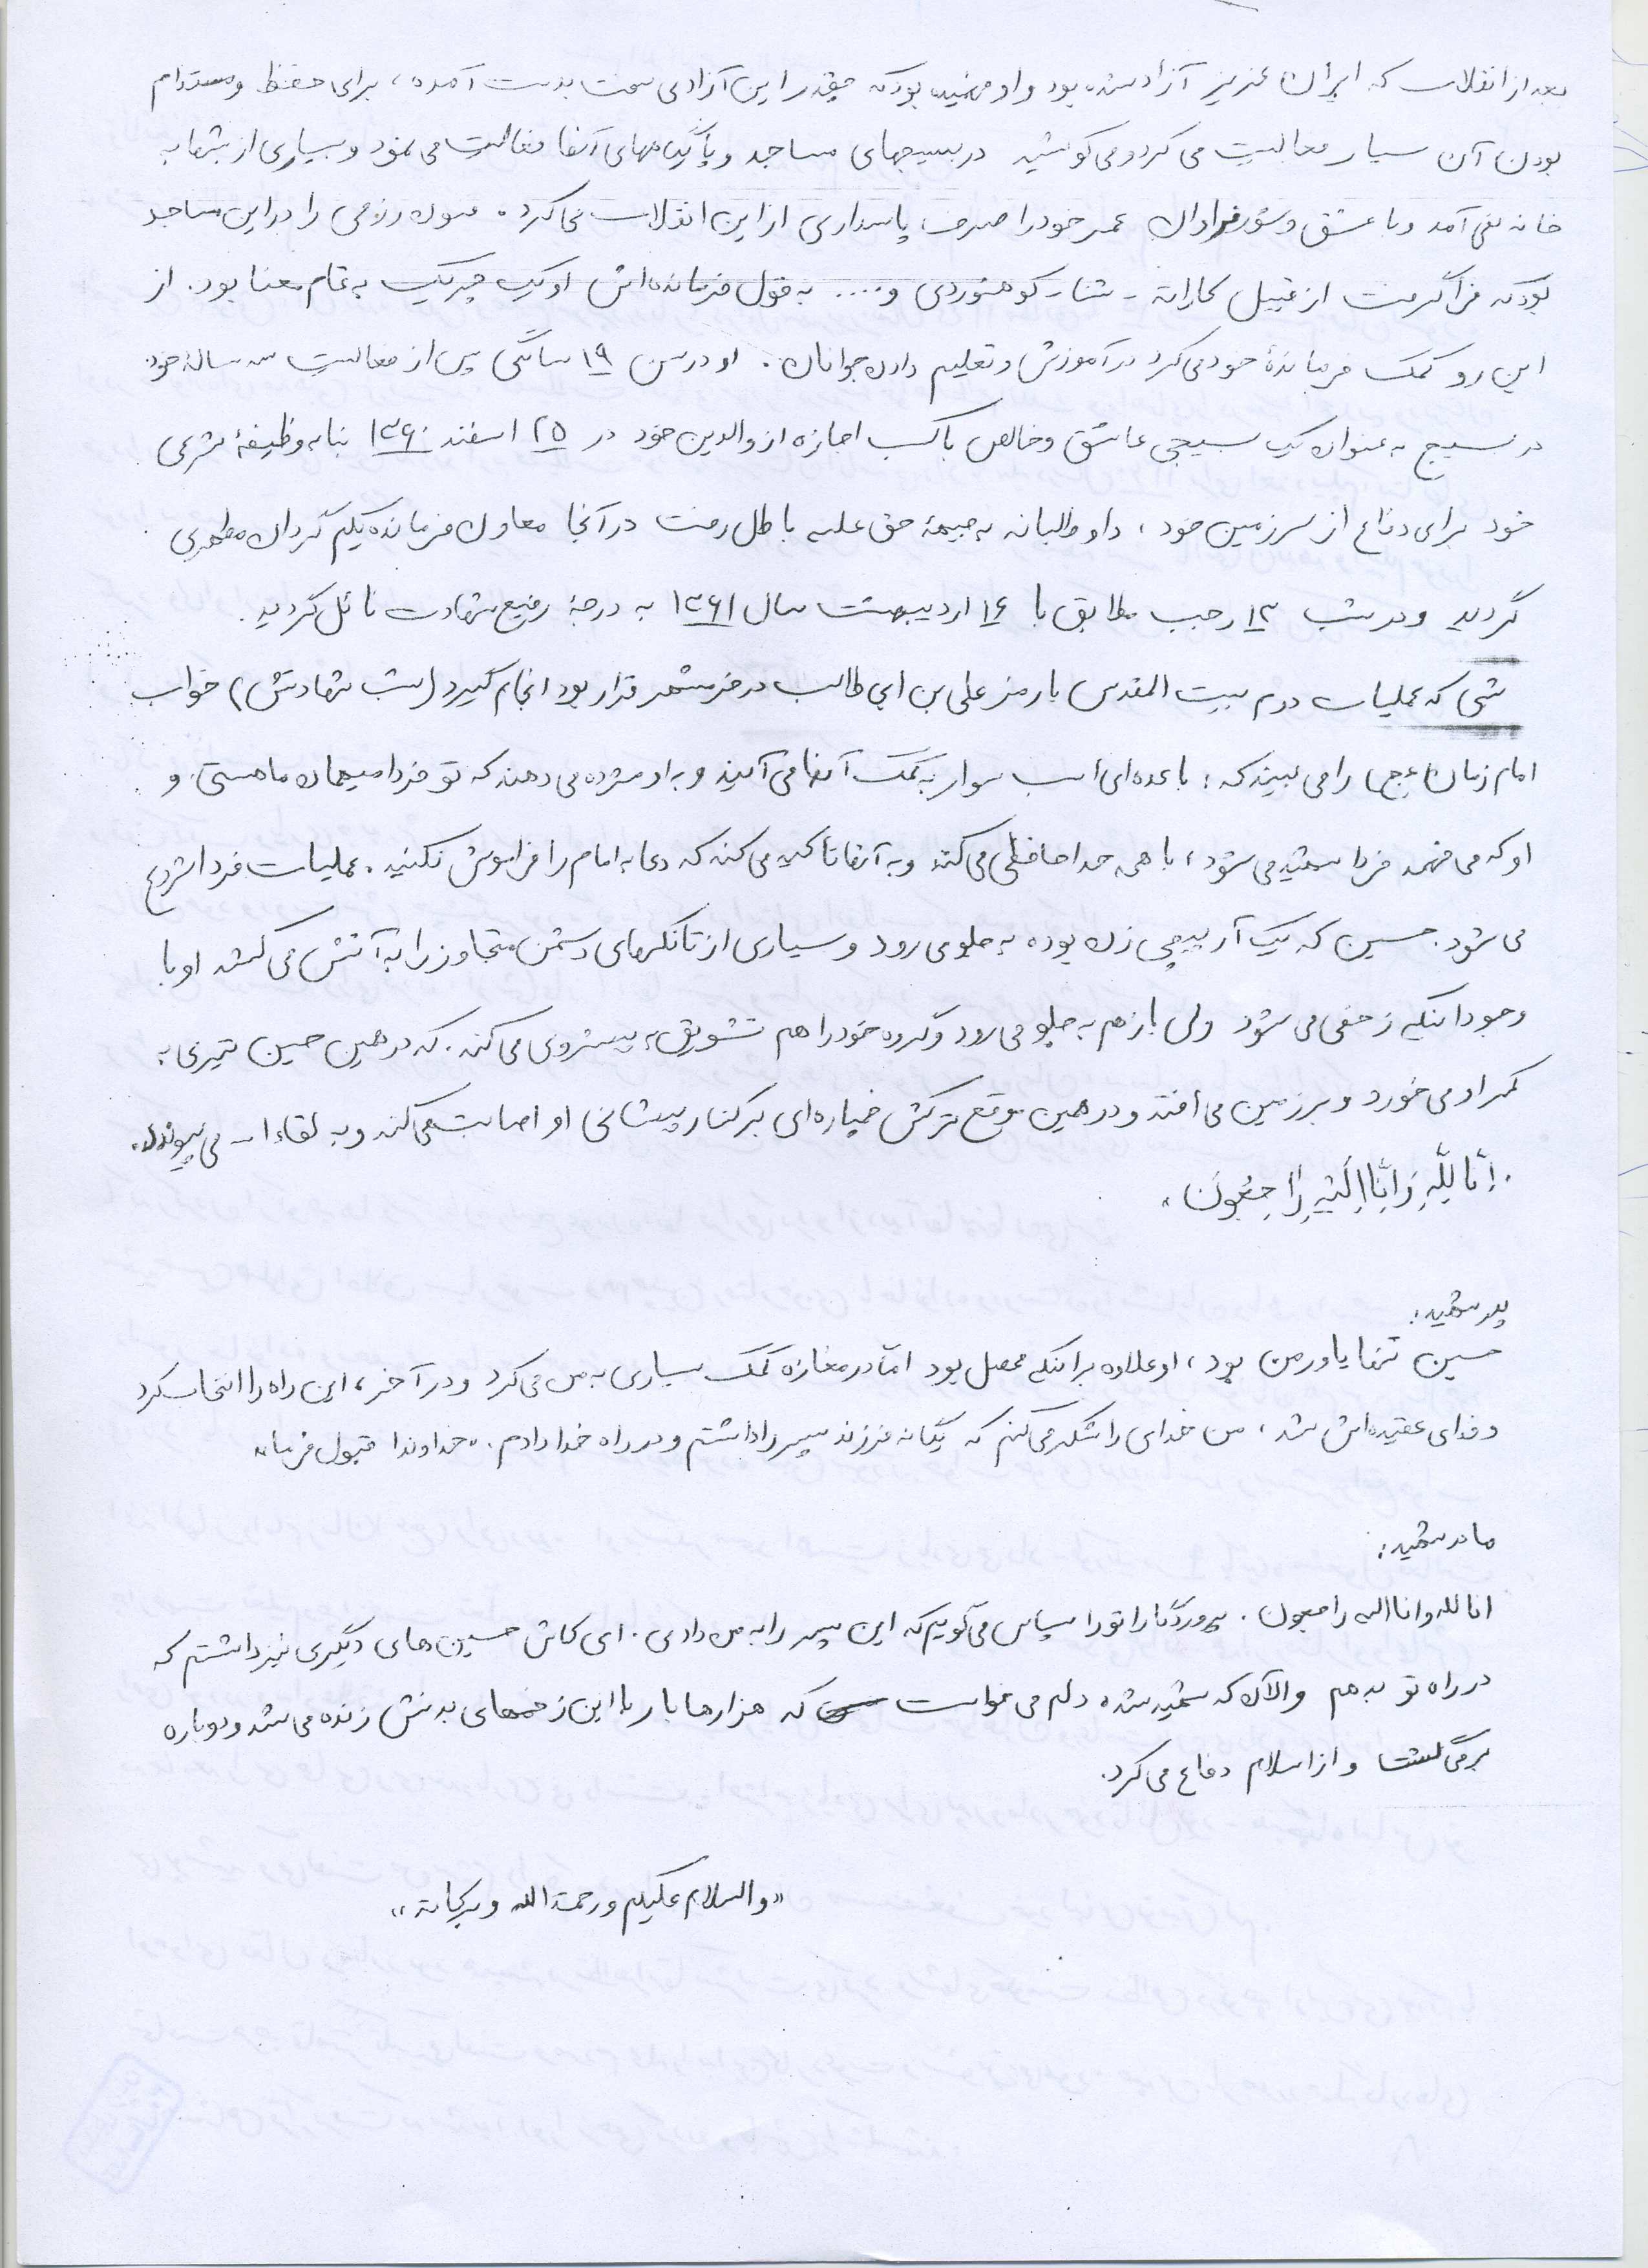 بعد از انقلاب که ایران عزیز آزاد شده بود و او فهمیده بود که چقدر این آزادی سخت بدست آمده، برای حفظ و مستدام
بودن آن بسیار فعالیت می کرد و می کوشید در بسیجهای مساجد و پایگاههای آنها فعالیت می نمود و بسیاری از شبها به
خانه نمی آمد و با عشق و شور فراوان عمر خود را صرف پاسداری از این انقلاب می کرد. فنون رزمی را در این مساجد
بود که فرا گرفت از قبیل کاراته - شنا - کوهنوردی و .... به قول فرمانده اش او یک چریک به تمام معنا بود. از
این رو کمک فرماندهٔ خود می کرد در آموزش و تعلیم دادن جوانان. او در سن ۱۹ سالگی پس از فعالیت سه سالهٔ خود
در بسیج به عنوان یک بسیجی عاشق و خالص با کسب اجازه از والدین خود در ۲۵ اسفند ۱۳۶۰ بنا به وظیفهٔ شرعی
خود برای دفاع از سرزمین خود، داوطلبانه به جبههٔ حق علیه باطل رفت در آنجا معاون فرمانده یکم گردان مطهری
گردید و در شب ۱۳ رجب مطابق با ۱۶ اردیبهشت سال ۱۳۶۱ به درجهٔ رفیع شهادت نائل گردید.
شبی که عملیات دوم بیت المقدس با رمز علی بن ابی طالب در خرمشهر قرار بود انجام گیرد (شب شهادتش) خواب
امام زمان (عج) را می بیند که: با عده ای اسب سوار به کمک آنها می آیند و به او مژده می دهند که تو فردا میهمان ما هستی و
او که می فهمد فردا شهید می شود، با همه خداحافظی می کند و به آنها تاکید می کند که دعا به امام را فراموش نکنید. عملیات فردا شروع
می شود. حسین که یک آرپیچی زن بوده به جلو می رود و بسیاری از تانکرهای دشمن متجاوز را به آتش می کشد او با
وجود اینکه زخمی می شود ولی باز هم به جلو می رود و گروه خود را هم تشویق به پیشروی می کند. که در همین حین تیری به
کمر او می خورد و بر زمین می افتد و در همین موقع ترکش خمپاره ای بر کنار پیشانی او اصابت می کند و به لقاء ا... می پیوندد.
.اِنّا لِلّهِ وَ اِنّا اِلَیْهِ راجِعُونَ.
پدر شهید:
حسین تنها یاور من بود، او علاوه بر اینکه محصل بود امّا در مغازه کمک بسیاری به من می کرد و در آخر، این راه را انتخاب کرد
و فدای عقیده اش شد، من خدای را شکر می کنم که یگانه فرزند پسر را داشتم و در راه خدا دادم. «خداوندا قبول فرما»
مادر شهید:
انا لله و انا الیه راجعون. پروردگارا تو را سپاس می گویم که این پسر را به من دادی. ای کاش حسین های دیگری نیز داشتم که
در راه تو بدهم والآن که شهید شده دلم می خواست که هزارها بار با این زخمهای بدنش زنده می شد و دوباره
برمی گشت و از اسلام دفاع می کرد.
«والسلام علیکم و رحمة الله و برکاته»